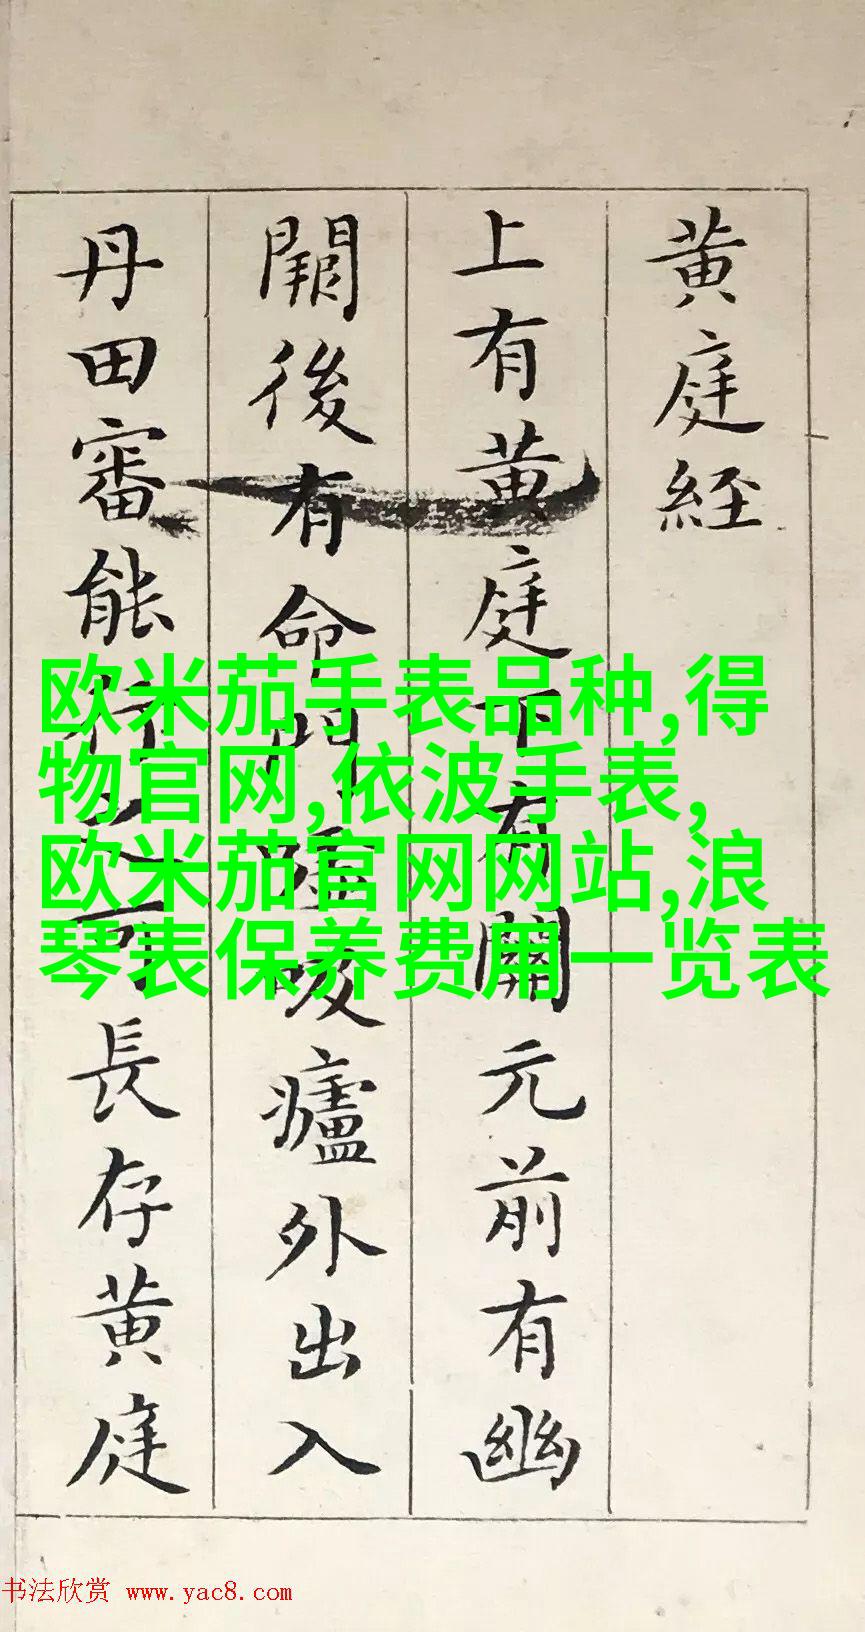 黄庭經
上有黄庭下有關元前有幽
闕後有命門嘘吸廬外出入
丹田審能行之可長存黄庭
欧米茄手表品种,得
物官网,依波手表,
欧米茄官网网站,浪
琴表保养费用一览表
书法欣赏 www.yac8.com